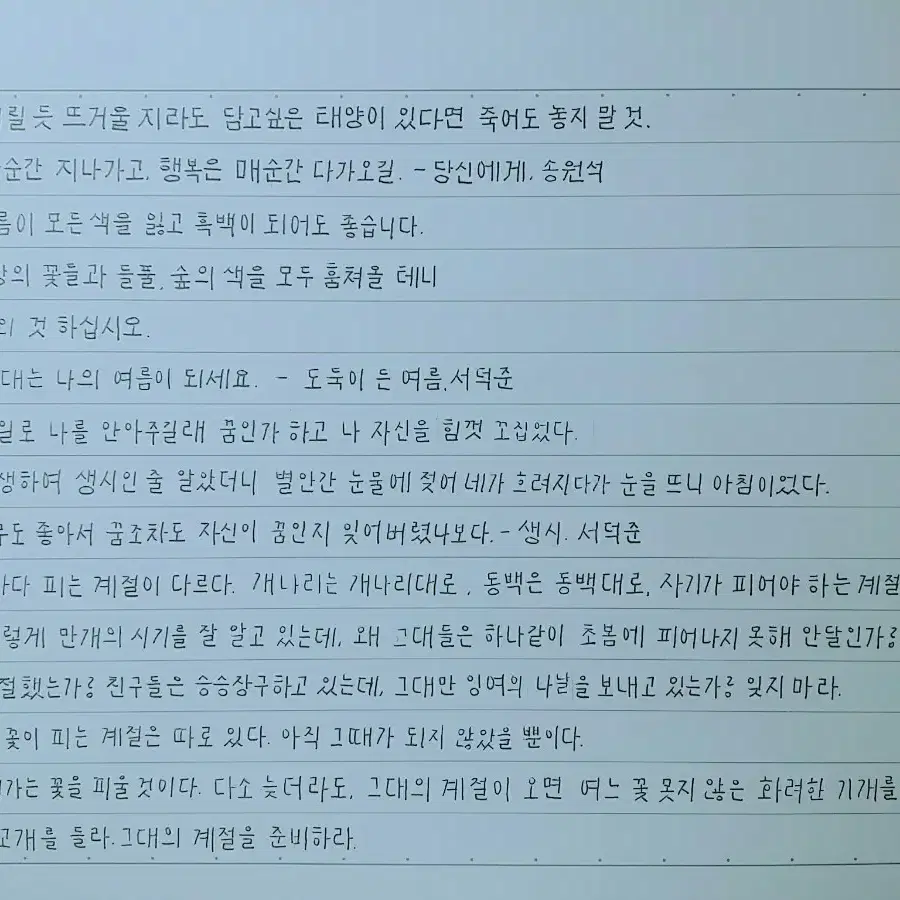 릴 듯 뜨거울 지라도 담고싶은 태양이 있다면 죽어도 놓지 말 것.
순간 지나가고, 행복은 매순간 다가오길. - 당신에게, 송원석
름이 모든 색을 잃고 흑백이 되어도 좋습니다.
상의 꽃들과 들풀, 숲의 색을 모두 훔쳐올 테니
것 하십시오.
대는 나의 여름이 되세요. - 도둑이 든 여름, 서덕준
일로 나를 안아주길래 꿈인가 하고 나 자신을 힘껏 꼬집었다.
생하여 생시인 줄 알았더니 별안간 눈물에 젖어 네가 흐려지다가 눈을 뜨니 아침이었다.
무도 좋아서 꿈조차도 자신이 꿈인지 잊어버렸나보다. - 생시. 서덕준
마다 피는 계절이 다르다. 개나리는 개나리대로, 동백은 동백대로, 자기가 피어야 하는 계절
렇게 만개의 시기를 잘 알고 있는데, 왜 그대들은 하나같이 초봄에 피어나지 못해 안달인가?
절했는가? 친구들은 승승장구하고 있는데, 그대만 잉여의 나날을 보내고 있는가? 잊지 마라.
꽃이 피는 계절은 따로 있다. 아직 그때가 되지 않았을 뿐이다.
가는 꽃을 피울 것이다. 다소 늦더라도, 그대의 계절이 오면 여느 꽃 못지 않은 화려한 기개를
고개를 들라. 그대의 계절을 준비하라.